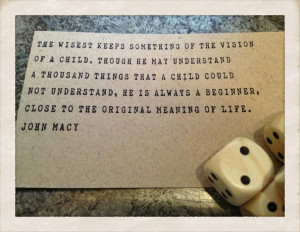 THE WISEST KEEPS SOMETHING OF THE VISION
OF A CHILD. THOUGH HE MAY UNDERSTAND
A THOUSAND THINGS THAT A CHILD COULD
NOT UNDERSTAND, HE IS ALWAYS A BEGINNER,
CLOSE TO THE ORIGINAL MEANING OF LIFE.
JOHN MACY